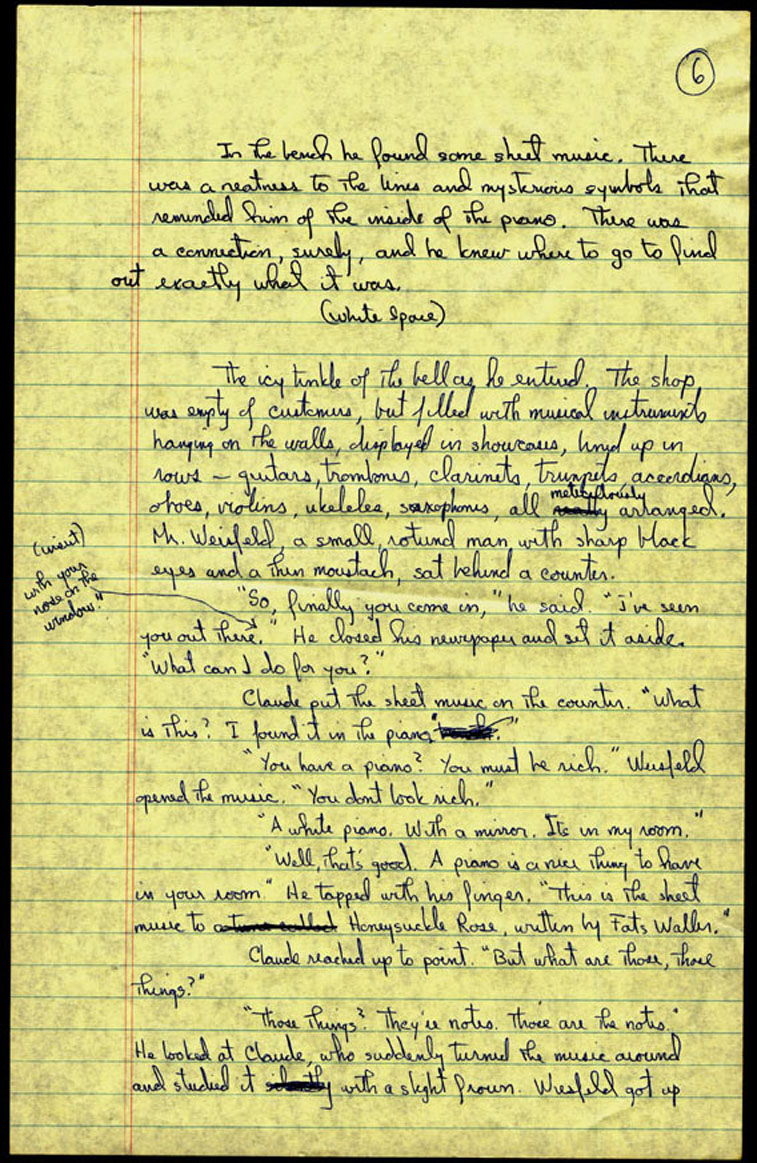 6
In the bench he found some sheet music. There
was a neatness to the lines and mysterious symbols that
reminded him of the inside of the piano. There was
a connection, surely, and he knew where to go to find
out exactly what it was.
(White Space)
The icy tinkle of the bell as he entered. The shop
was empty of customers, but filled with musical instruments
hanging on the walls, displayed in showcases, lined up in
rows — guitars, trombones, clarinets, trumpets, accordians,
meticulously
oboes, violins, ukeleles, saxophones, all arranged.
Mr. Weisfeld, a small, rotund man with sharp black
eyes and a thin moustach, sat behind a counter.
(insert)
with your
nose on the
window."
"So, finally you come in," he said. "I've seen
you out there." He closed his newspaper and set it aside.
"What can I do for you?"
Claude put the sheet music on the counter. "What
is this? I found it in the piano."
"You have a piano? You must be rich." Weisfeld
opened the music. "You dont look rich."
"A white piano. With a mirror. Its in my room."
"Well, that's good. A piano is a nice thing to have
in your room." He tapped with his finger. "This is the sheet
music to a tune called Honeysuckle Rose, written by Fats Waller."
Claude reached up to point. "But what are those, those
things?"
"Those things? They're notes. Those are the notes."
He looked at Claude, who suddenly turned the music around
and studied it silently with a slight frown. Wiesfeld got up